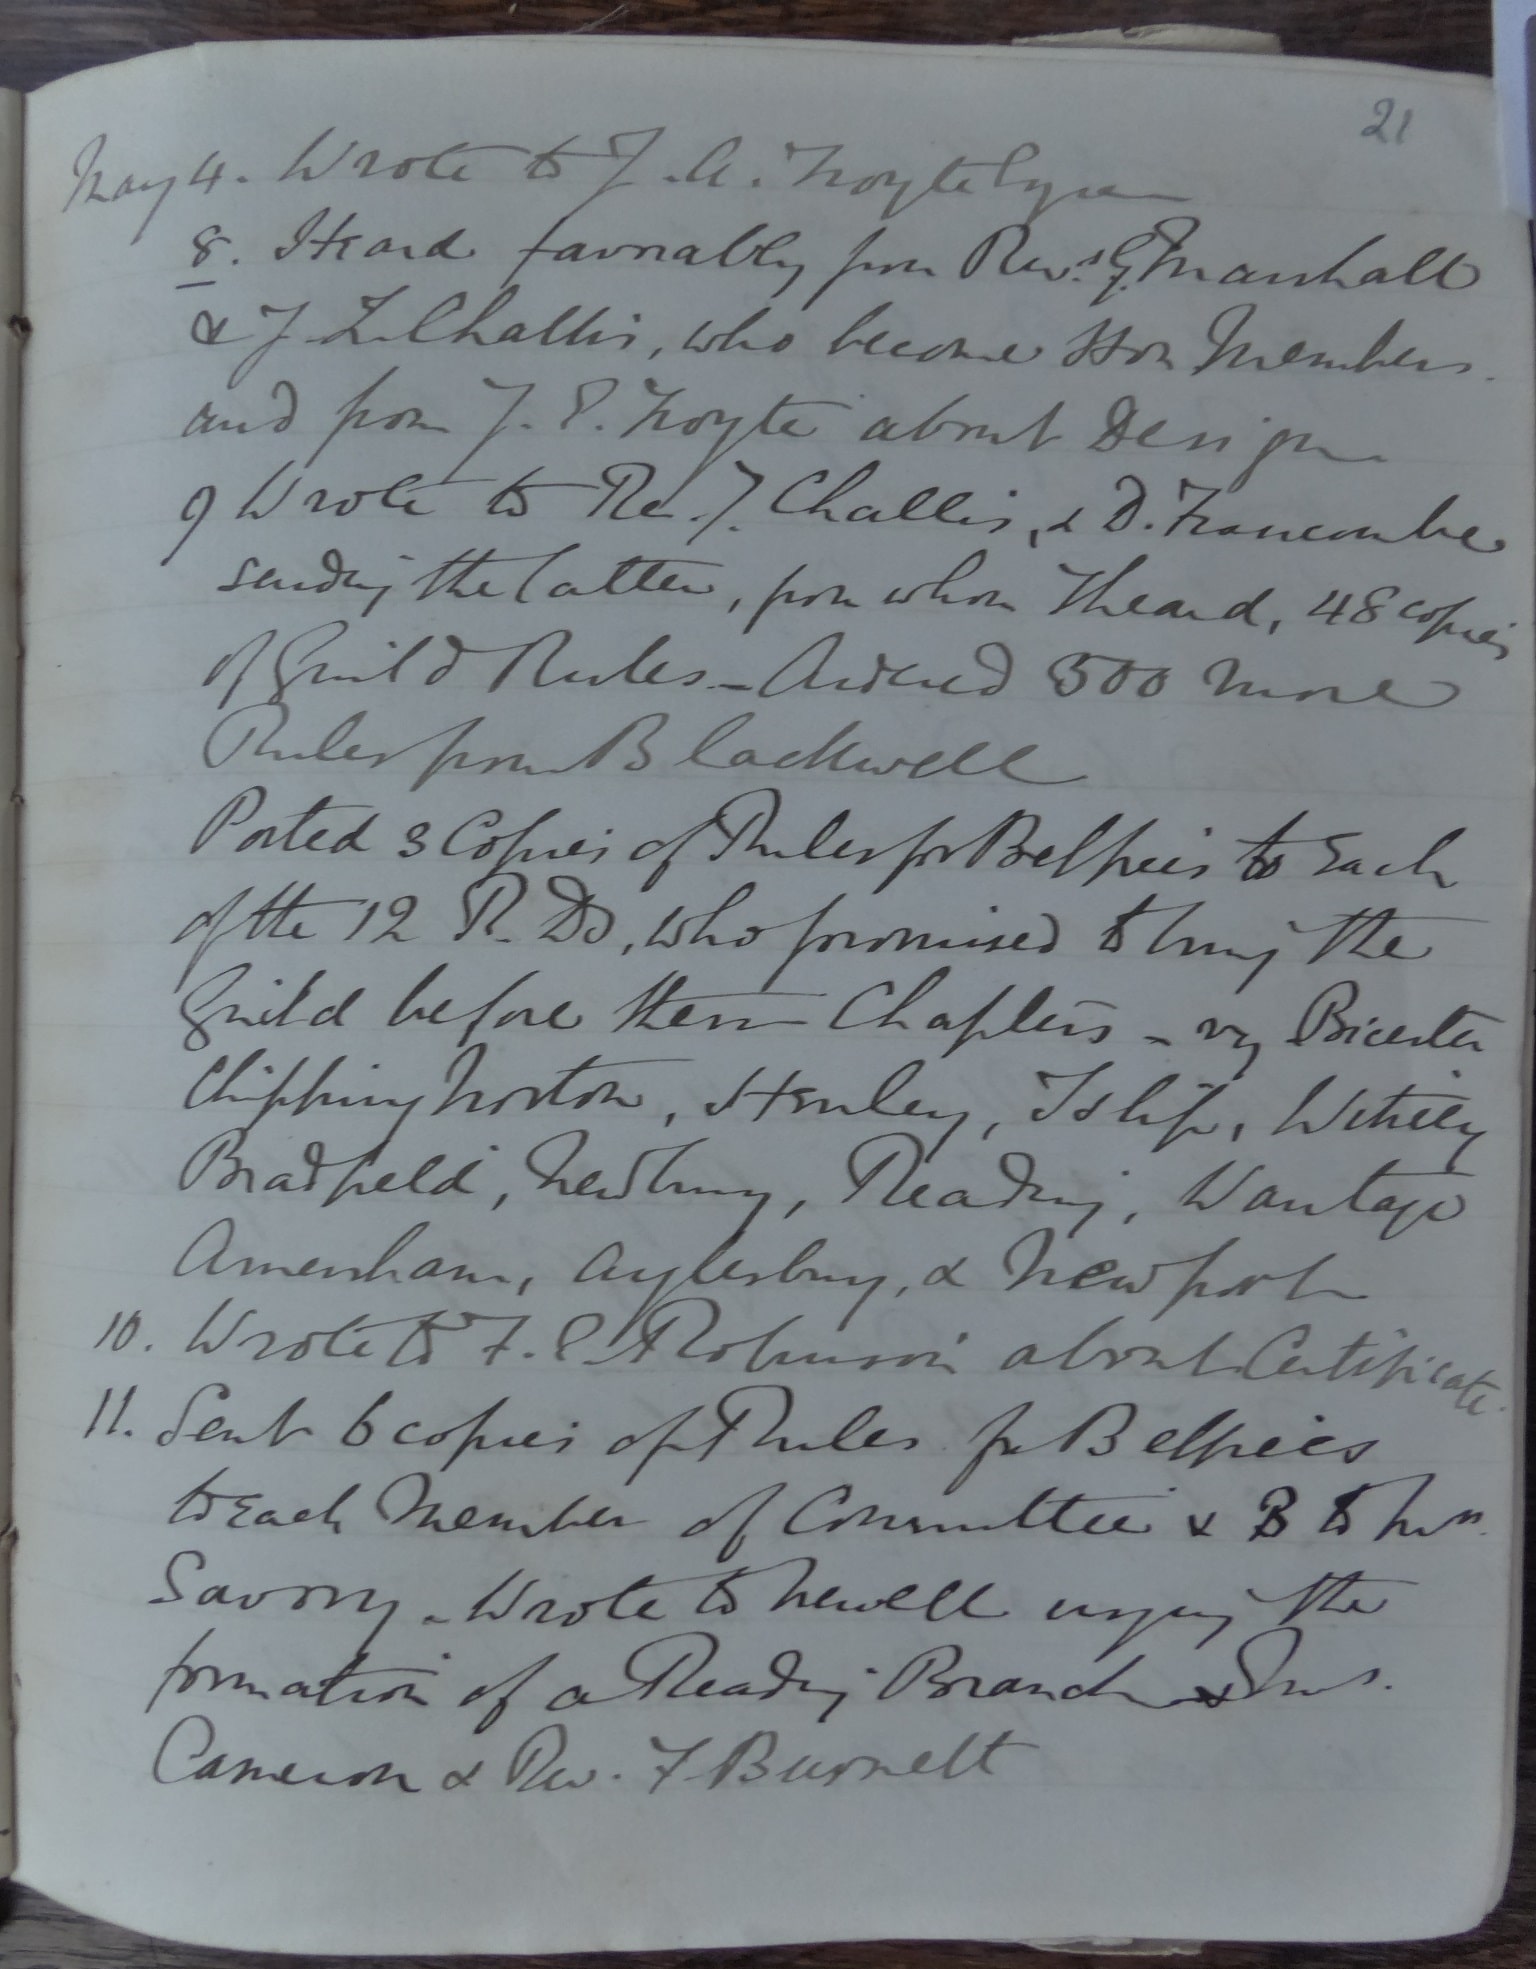 21
May 4. Wrote to J. A. Troyte
8. Heard favorably from Revs. G. Marshall
& J. L. Challis, who become Hon Members.
and from J. E. Troyte about Design
9 Wrote to Rev. J. Challis, & D. Francombe
sending the latter, from whom I heard, 48 copies
of Guild Rules - Ordered 500 more
Rules from Blackwell
Posted 3 Copies of Rules for Belfries to Each
of the 12 R. Ds, who promised to bring the
Guild before their Chapters - viz Bicester
Chipping Norton, Henley, Islip, Witney
Bradfield, Newbury, Reading, Wantage
Amersham, Aylesbury, & Newport
10. Wrote to F. E. Robinson about Certificate.
11. Sent 6 copies of Rules for Belfries
to Each Member of Committee & 3 to
Savory - Wrote to Newell urging the
formation of a Reading Branch &
Cameron & Rev. F Burnett